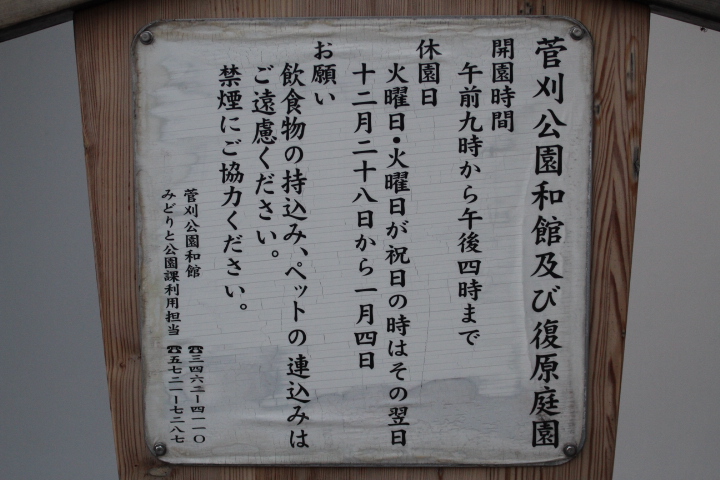 菅刈公園和館及び復原庭園
開園時間
午前九時から午後四時まで
休園日
火曜日・火曜日が祝日の時はその翌日
十二月二十八日から一月四日
お願い
飲食物の持込み、ペットの連込みは
ご遠慮ください。
禁煙にご協力ください。
菅刈公園和館 ☎三四六二ー四一一〇
みどりと公園課利用担当 ☎五七二一ー七二八七